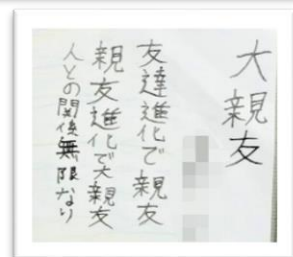 大親友
友達進化で親友
親友進化で大親友
人との関係無限なり